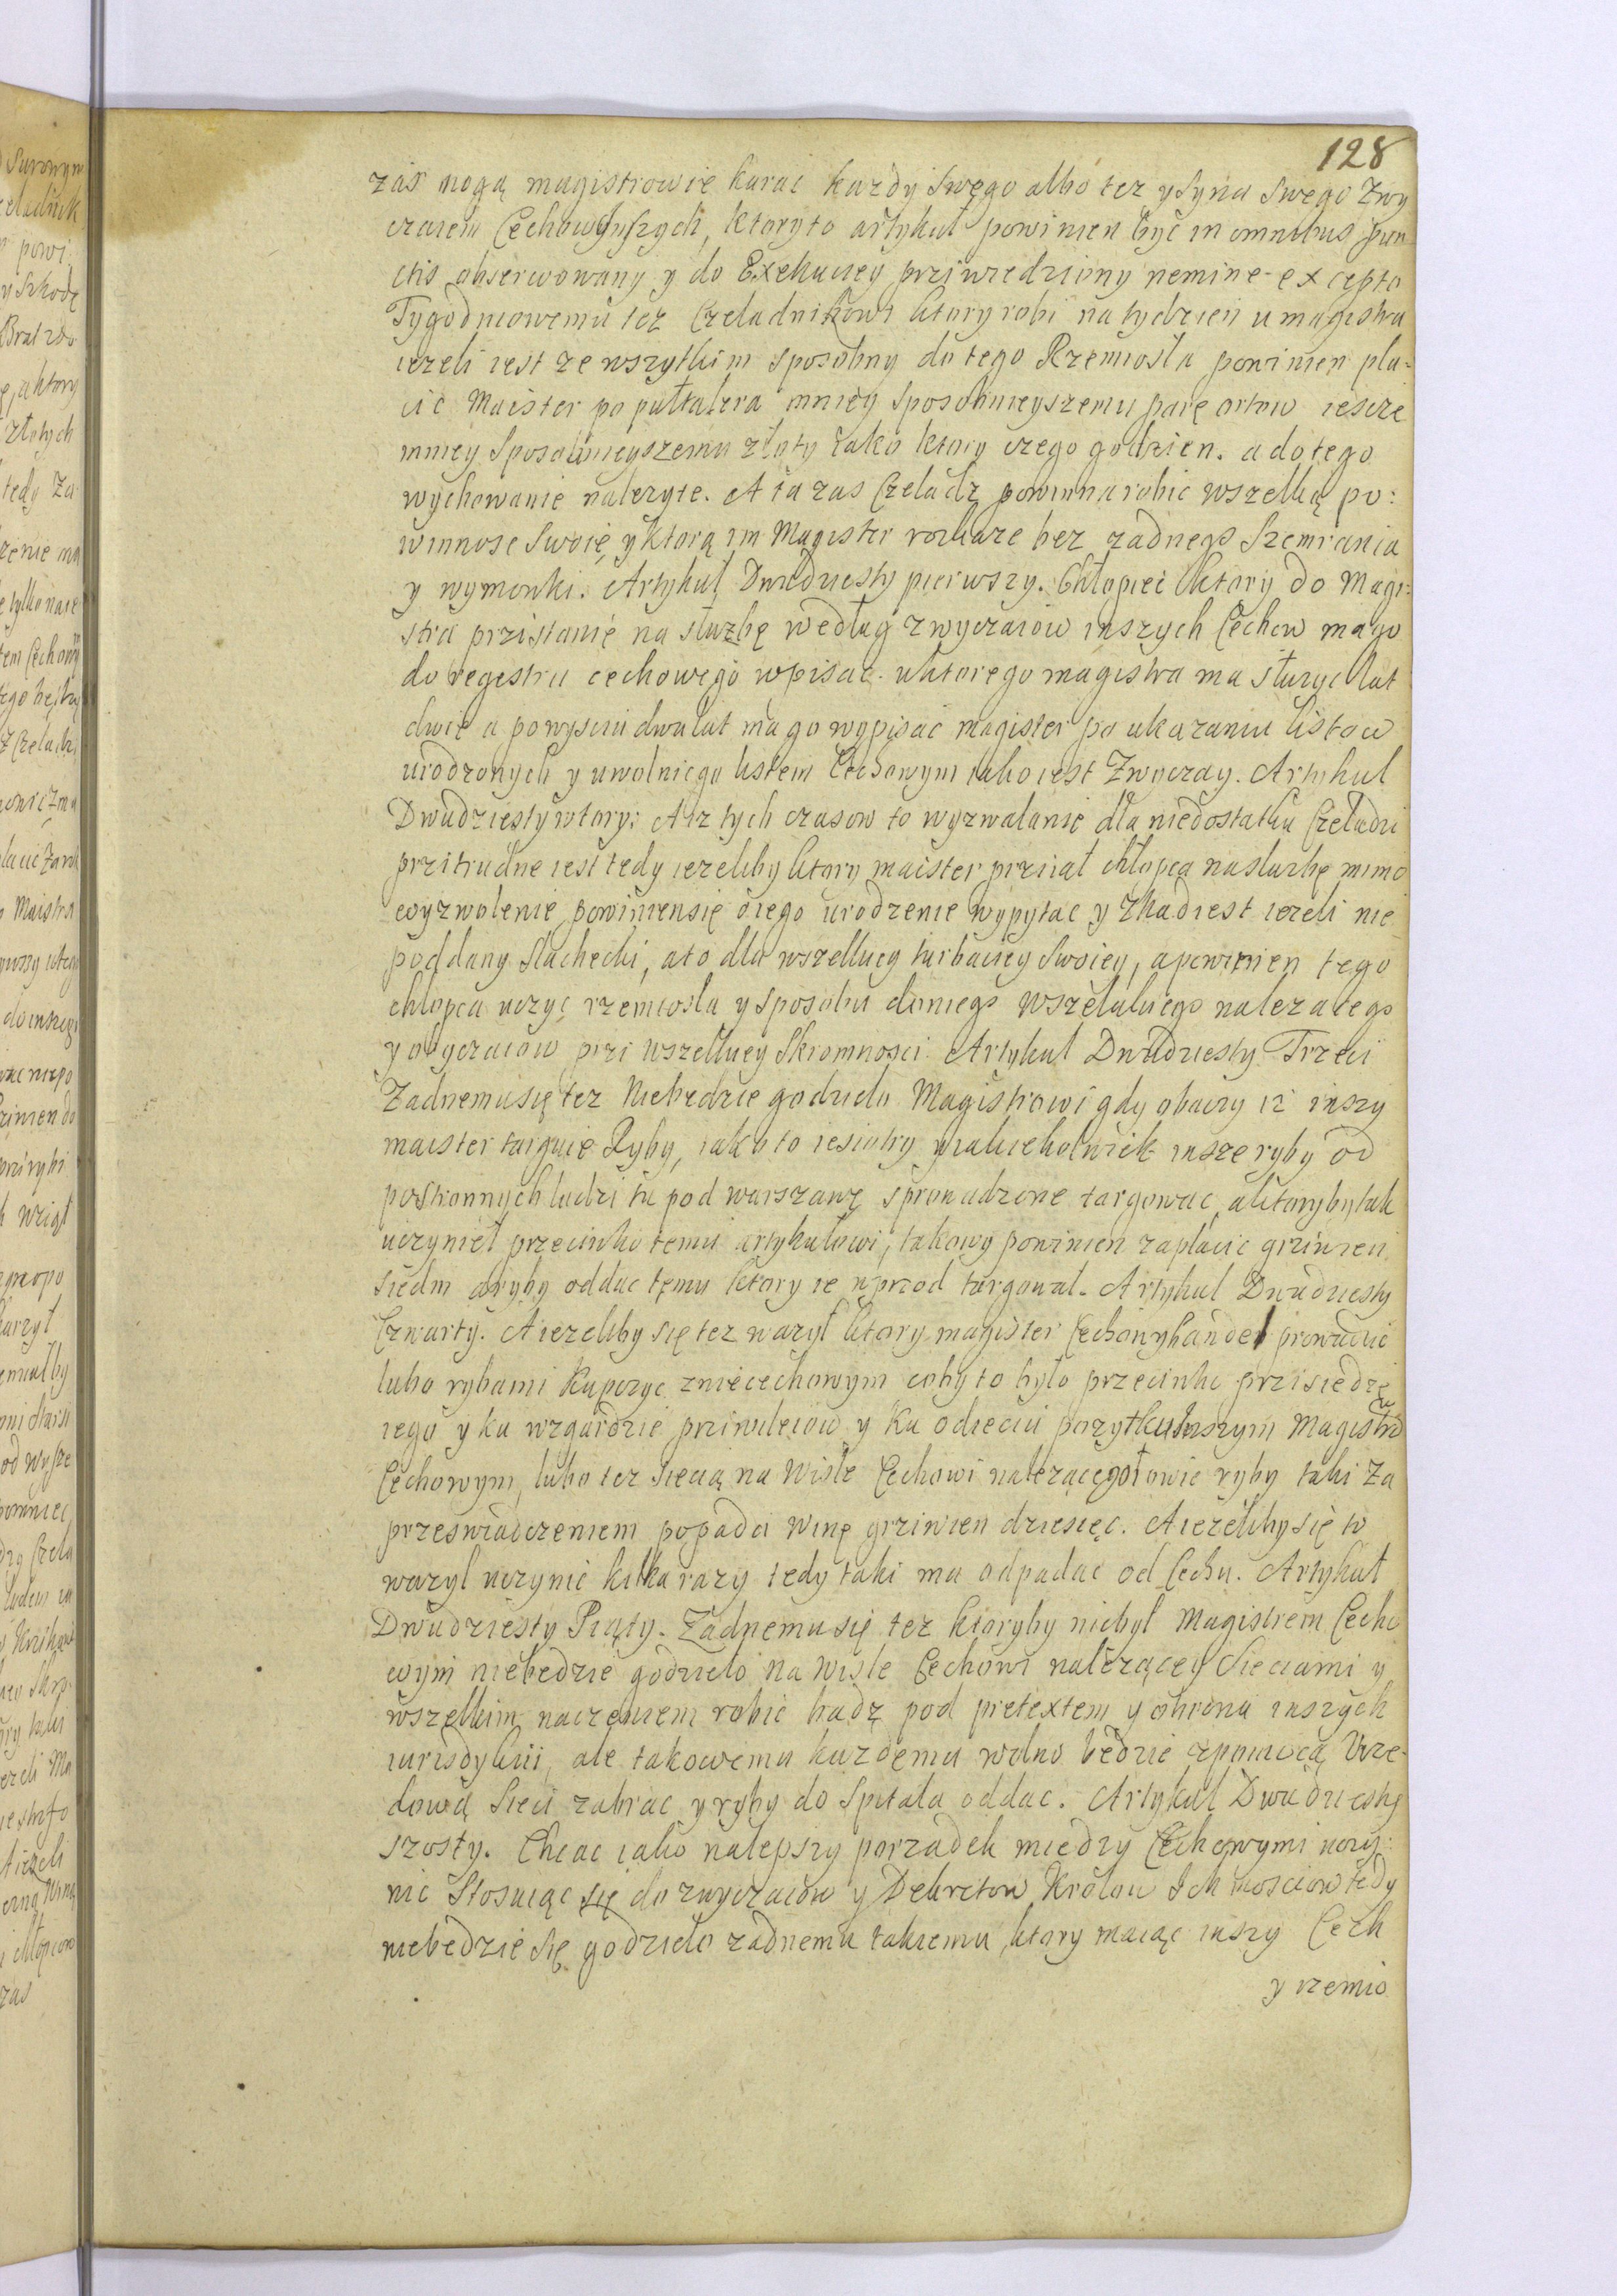 128
zaś mogą magistrowie karać kazdy swego albo tez y syna swego zwy
czaiem Cechow inszych, ktory to artykuł powinien być in omnibus pun
ctis obserwowany y do Exekucyey prziwiedziony nemine excepto
Tygodniowemu tez Czeladnikowi ktory robi na tydzień u magistra
iezeli iest ze wszytkim sposobny do tego Rzemiosła powinien pła-
cić Maister po pułtalera mniey sposobnieyszemu parę ortow iescze
mniey sposobnieyszemu złoty iako ktory czego godzien. a do tego
wychowanie nalezyte. A ta zas Czeladz powinna robic wszelką po:
winnosc swoię y ktorą im Magister roskaze bez zadnego szemrania
y wymowki. Artykuł Dwudziesty pierwszy. Chłopiec ktory do Magi:
stra przistanie na słuzbę według zwyczaiow inszych Cechow ma go
do regestru cechowego wpisac. u ktorego magistra ma słuzyc lat
dwie a po wysciu dwu lat ma go wypisać magister po ukazaniu listow
urodzonych y uwolni go listem Cechowym iako iest Zwyczay. Artykul
Dwudziesty wtory: A iz tych czasow to wyzwalanie dla niedostatku Czeladzi
przitrudne iest tedy iezeliby ktory maister prziiał chłopca na sluzbę mimo
wyzwolenie powinien się o iego urodzenie wypytac y zkad iest iezeli nie
poddany slachecki, a to dla wszelkiey turbaciey swoiey, a powinien tego
chlopca uczyc rzemiosla y sposobu do niego wszelakiego nalezałego
y obyczaiow przi wszelkiey skromnosci. Artykul Dwudziesty Trzeci
Zadnemu się tez Niebedzie godzielo Magistrowi gdy obaczy iz inszy
maister targuie Ryby, iako to iesiotry y iakiekolwiek insze ryby od
postronnych ludzi tu pod warszawę sprowadzone targowac, a ktoryby tak
uczynieł przeciwko temu artykułowi, takowy powinien zapłacic grziwien
siedm a ryby oddac temu ktory ie wprzod targowal. Artykul Dwudziesty
Czwarty. A iezeliby się tez wazył ktory magister Cechowy handel prowadzic
lubo rybami kupczyc z niecechowym coby to było przeciwko przisiedze
iego y ku wzgardzie prziwileiow y ku odieciu pozytku inszym Magistro
Cechowym, lubo tez siecią na Wisle Cechowi nalezącego łowic ryby taki za
przeswiadczeniem popada winę grziwien dziesięc. A iezeliby się to
wazyl uczynic kilka razy tedy taki ma odpadac od Cechu. Artykuł
Dwudziesty Piąty. Zadnemu się tez ktoryby niebył Magistrem Cecho
wym niebedzie godzieło na Wisle Cechowi nalezącey Sieciami y
wszelkim naczeniem robic badz pod pretextem y obroną inszych
iurisdykcii, ale takowemu kazdemu wolno bedzie z pomocą Urze-
dową sieci zabrac y ryby do Spitala oddac. Artykul Dwudziesty
szosty. Chcac iako nalepszy porzadek miedzy Cechowymi uczy:
nic Stosuiąc się do zwyczaiow y Dekretow Krolow Ich Mosciow tedy
niebedzie się godzieło zadnemu takiemu, ktory maiąc inszy Cech
y rzemio